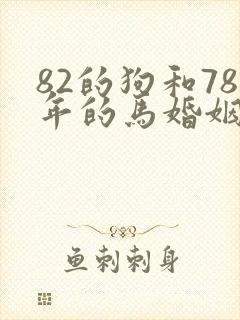 82的狗和78
年的馬婚姻
鱼刺刺身